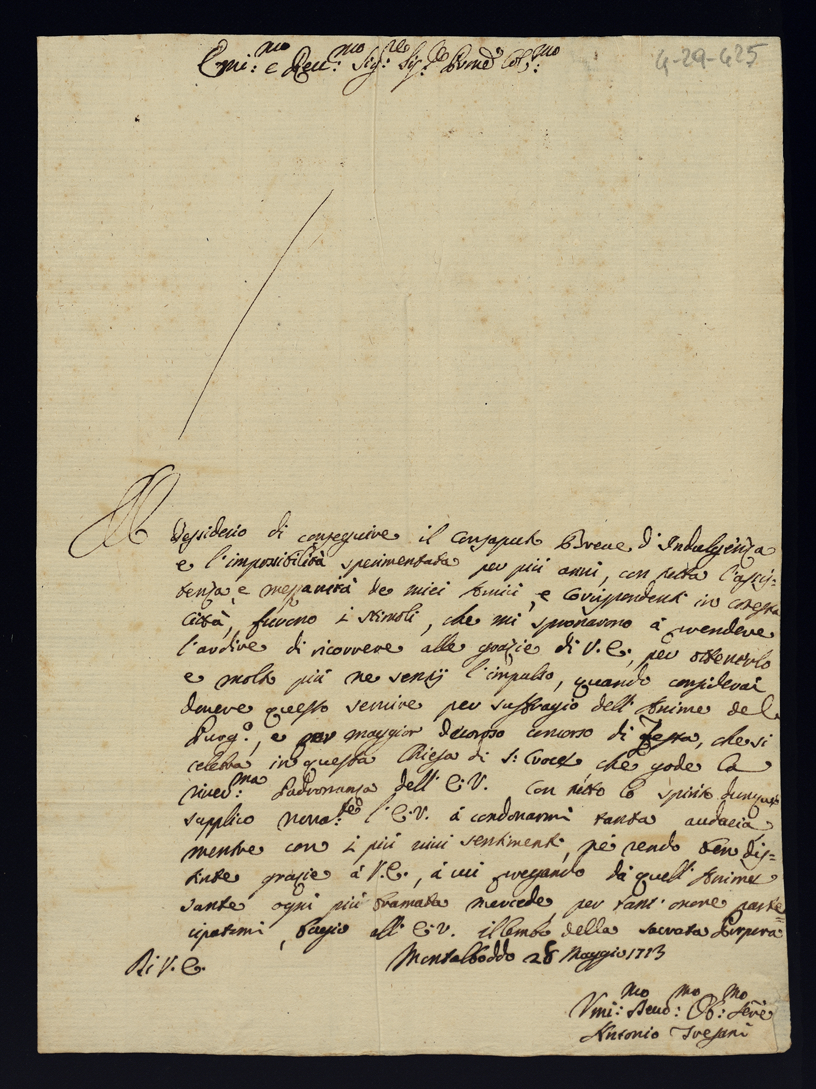 Emi:mo e Reu:mo Sig:re Sig:re Prone Col:mo
4-29-425
Il dessiderio di conseguire il consaputo Breue d'Indulgenza
e l'impossibilità sperimentata per più anni, con tutta l'assis-
tenza, e mezzanità de miei Amici, e Corrispondenti in cotesta
Città, furono i stimoli, che mi spronarono à prendere
l'ardire di ricorrere alle grazie di V.E., per ottenerlo
e molto più ne sentij l'impulso, quando considerai
douere questo seruire per suffragio dell'Anime del
Purg:o, e per maggior decoroso concorso di Festa, che si
celebra in questa Chiesa di S: Croce che gode la
riueri:ma Padronanza dell'E.V. Con tutto lo spirito dunque
supplico l'E.V. à condonarmi tanta audacia
mentre con i più uiui sentimenti, ne rendo ben dis-
tinte grazie à V.E., à cui pregando da quell'Anime
sante ogni più bramata mercede per tant'onore parte-
cipatomi, bagio all'E.V. il lembo della sacrata Porpora
Di V.E. Montalboddo 28 Maggio 1713
Vmi:mo Deuo:mo Ob:mo Serue
Antonio Tresani